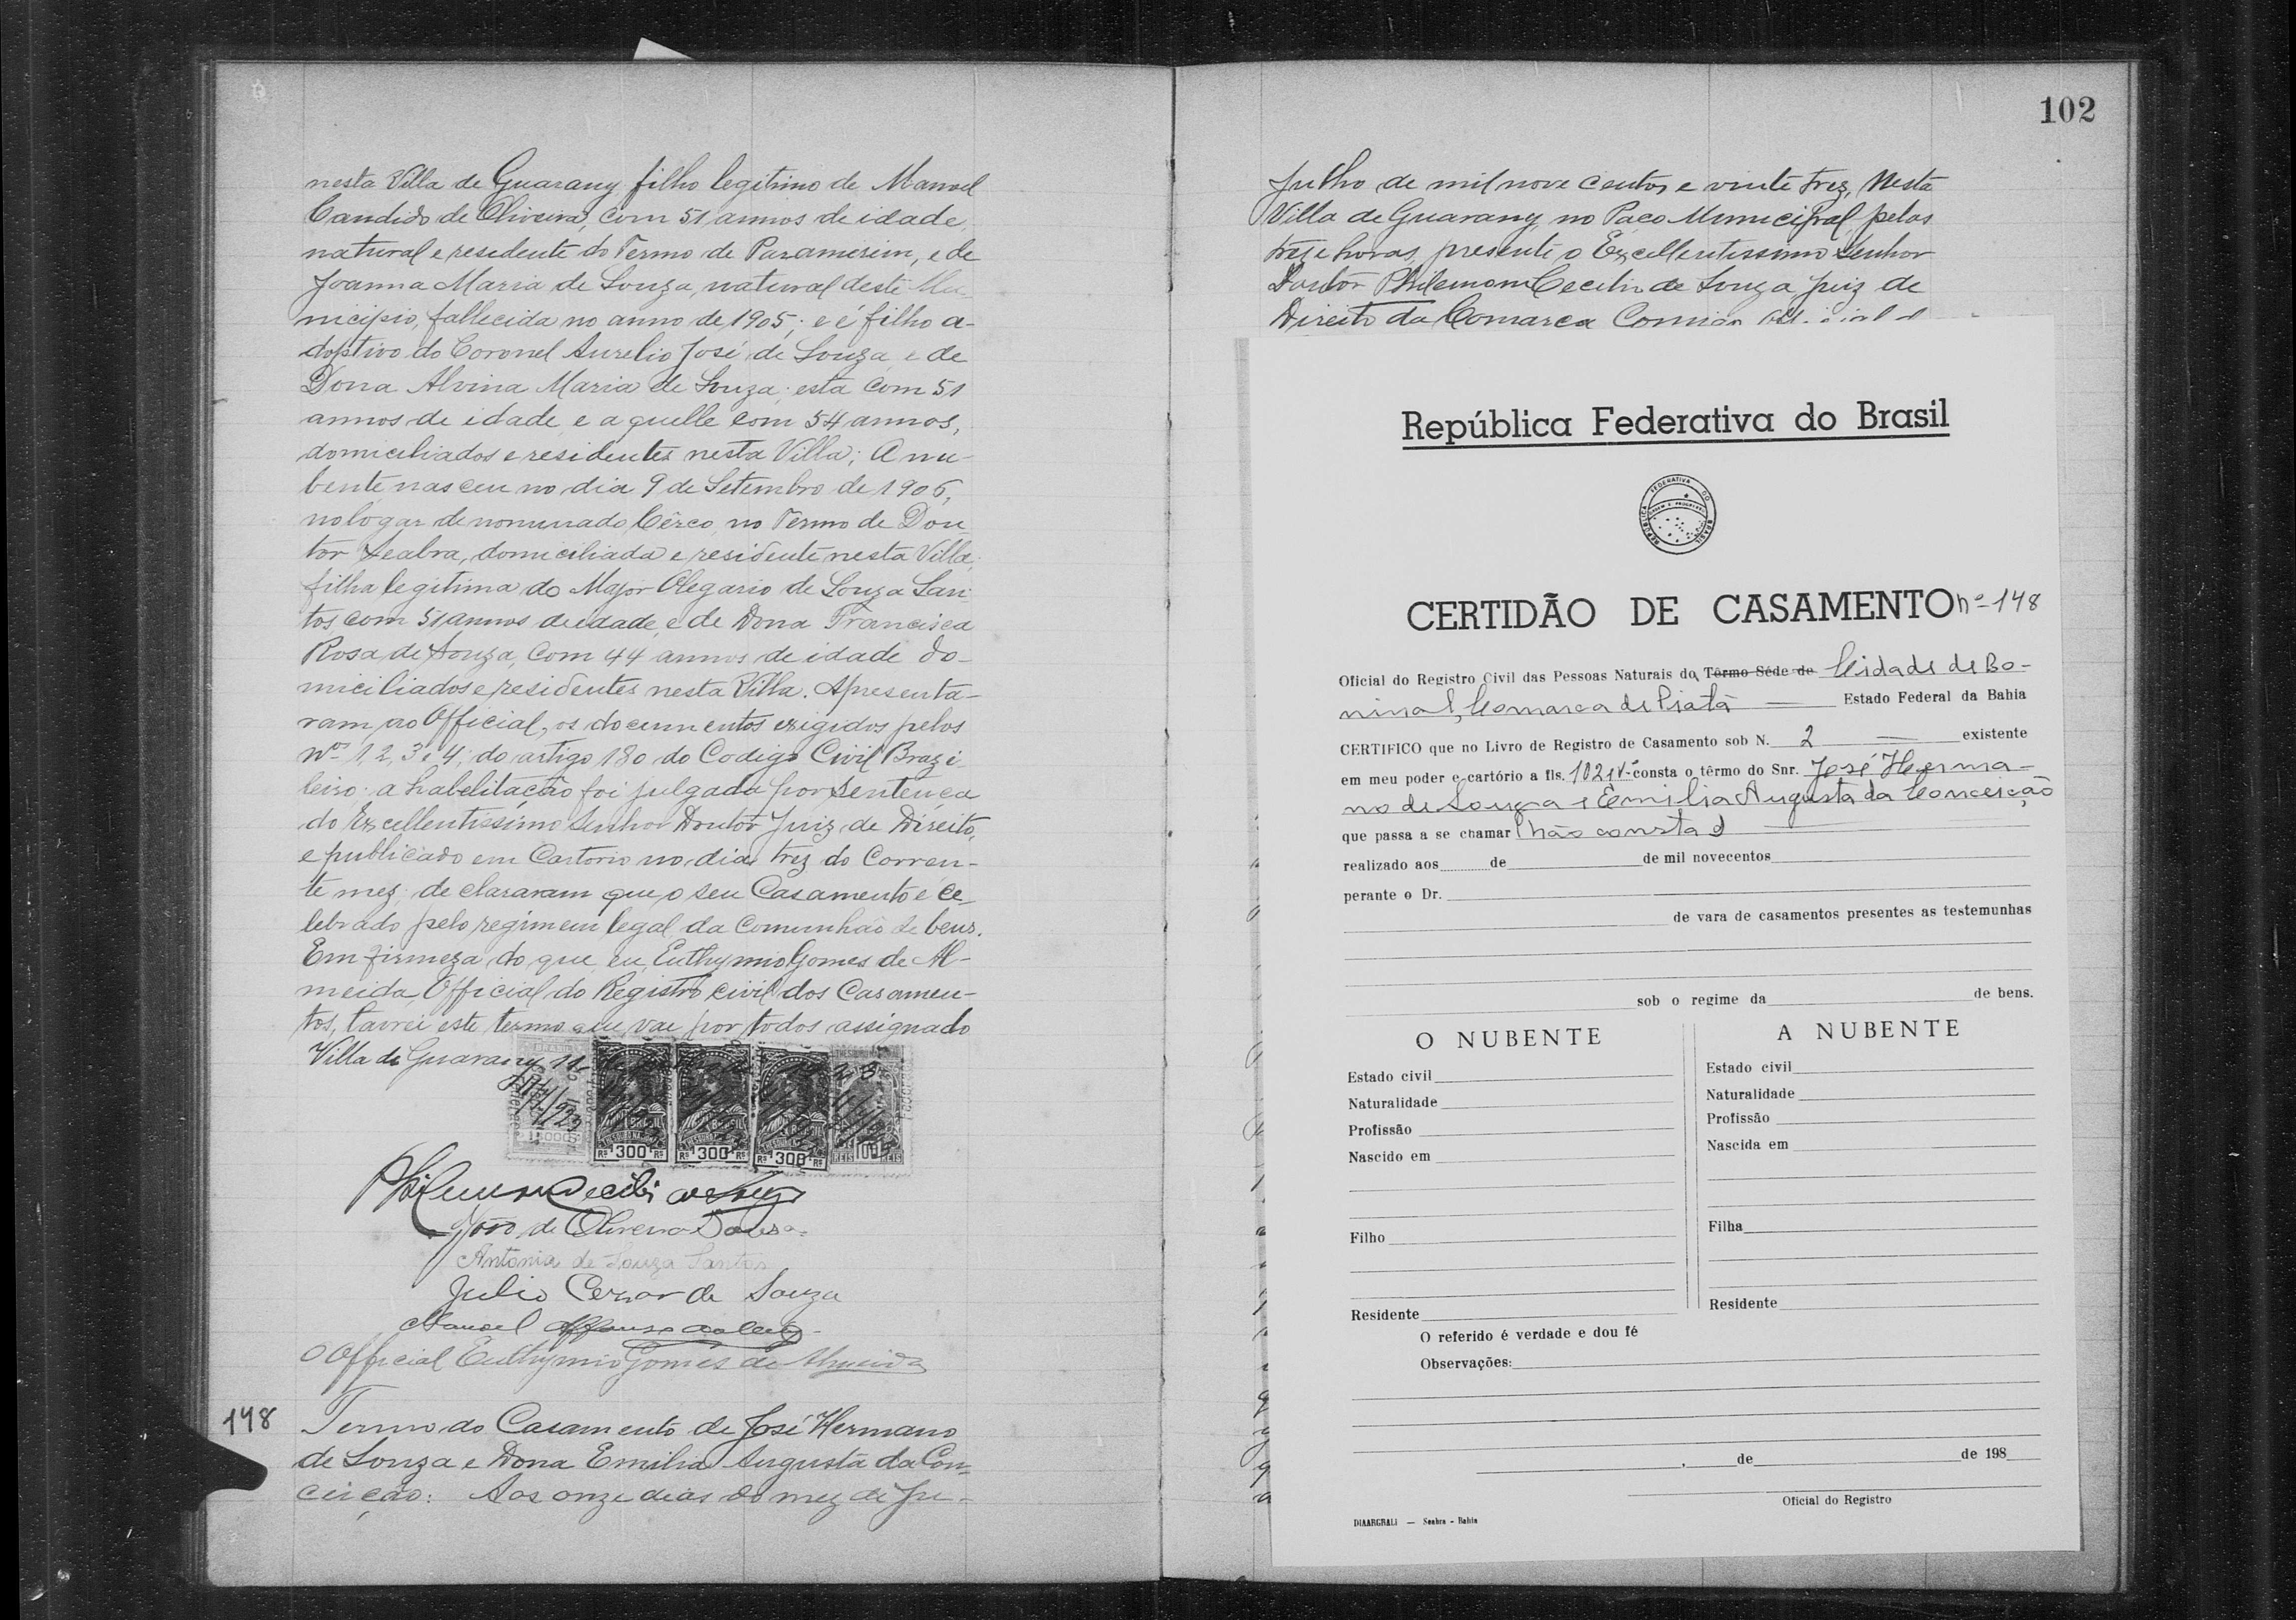 nesta Villa de Guarany filho legitimo de Manoel
Candido de Oliveira, com 51 annos de idade,
natural e residente do Termo de Paramerim, e de
Joanna Maria de Souza, natural deste Mu-
nicipio, fallecida no anno de 1905; e é filho a-
doptivo do Coronel Aurelio José de Souza e de
Dona Alvina Maria de Souza; esta com 51
annos de idade e aquelle com 54 annos,
domiciliados e residentes nesta Villa; A nu-
bente nasceu no dia 9 de Setembro de 1906,
no logar denominado Cêrco, no Termo de Dou
tor Seabra, domiciliada e residente nesta Villa,
filha legitima do Major Olegario de Souza San-
tos com 51 annos de idade, e de Dona Francisca
Rosa de Souza, com 44 annos de idade do-
miciliados e residentes nesta Villa. Apresenta-
ram ao Official, os documentos exigidos pelos
Nos 1, 2, 3 e 4, do artigo 180 do Codigo Civil Brazi-
leiro: a habelitação foi julgada por Sentença
do Excellentissimo Senhor Doutor Juiz de Direito,
e publicado em Cartorio no dia trez do Corren-
te mez; declararam que o seu Casamento é ce-
lebrado pelo regimem legal da Comunhão de bens.
Em firmeza do que, eu, Euthymio Gomes de Al-
meida, Official do Registro civil dos Casamen-
tos, lavrei este termo que vae por todos assignado
Villa de Guarany, 11
RS 300 RS
RS 300 RS
RS 300 RS
REIS 100 REIS
Philemon Cecilio de Souza
João de Oliveira Souza
Antonia de Souza Santos
Julio Cezar de Souza
Manoel Affonso
O Official Euthymio Gomes de Almeida
148
Termo do Casamento de José Hermano
de Souza e Dona Emilia Augusta da Con-
ceição: Aos onze dias do mez de Ju-
102
Julho de mil nove centos e vinte trez, nesta
Villa de Guarany, no Paço Municipal, pelas
treze horas, presente o Excellentissimo Senhor
Doutor Philemom Cecilio de Souza Juiz de
Direito da Comarca
República Federativa do Brasil
REPÚBLICA FEDERATIVA DO BRASIL
CERTIDÃO DE CASAMENTO nº 148
Oficial do Registro Civil das Pessoas Naturais do Têrmo Séde de Cidade de Bo-
ninal, Comarca de Piatã Estado Federal da Bahia
CERTIFICO que no Livro de Registro de Casamento sob N. 2 existente
em meu poder e cartório a fls. 102 v consta o têrmo do Snr. José Herma-
no de Souza e Emilia Augusta da Conceição
que passa a se chamar (não consta)
realizado aos de de mil novecentos
perante o Dr.
de vara de casamentos presentes as testemunhas
sob o regime da de bens.
O NUBENTE
Estado civil
Naturalidade
Profissão
Nascido em
Filho
Residente
A NUBENTE
Estado civil
Naturalidade
Profissão
Nascida em
Filha
Residente
O referido é verdade e dou fé
Observações:
, de de 198
Oficial do Registro
DIAARGRALI — Seabra - Bahia